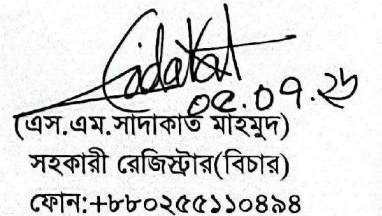 ০৫.০৭.২৬
(এস.এম.সাদাকাত মাহমুদ)
সহকারী রেজিস্ট্রার(বিচার)
ফোন:+৮৮০২৫৫১১০৪৯৪